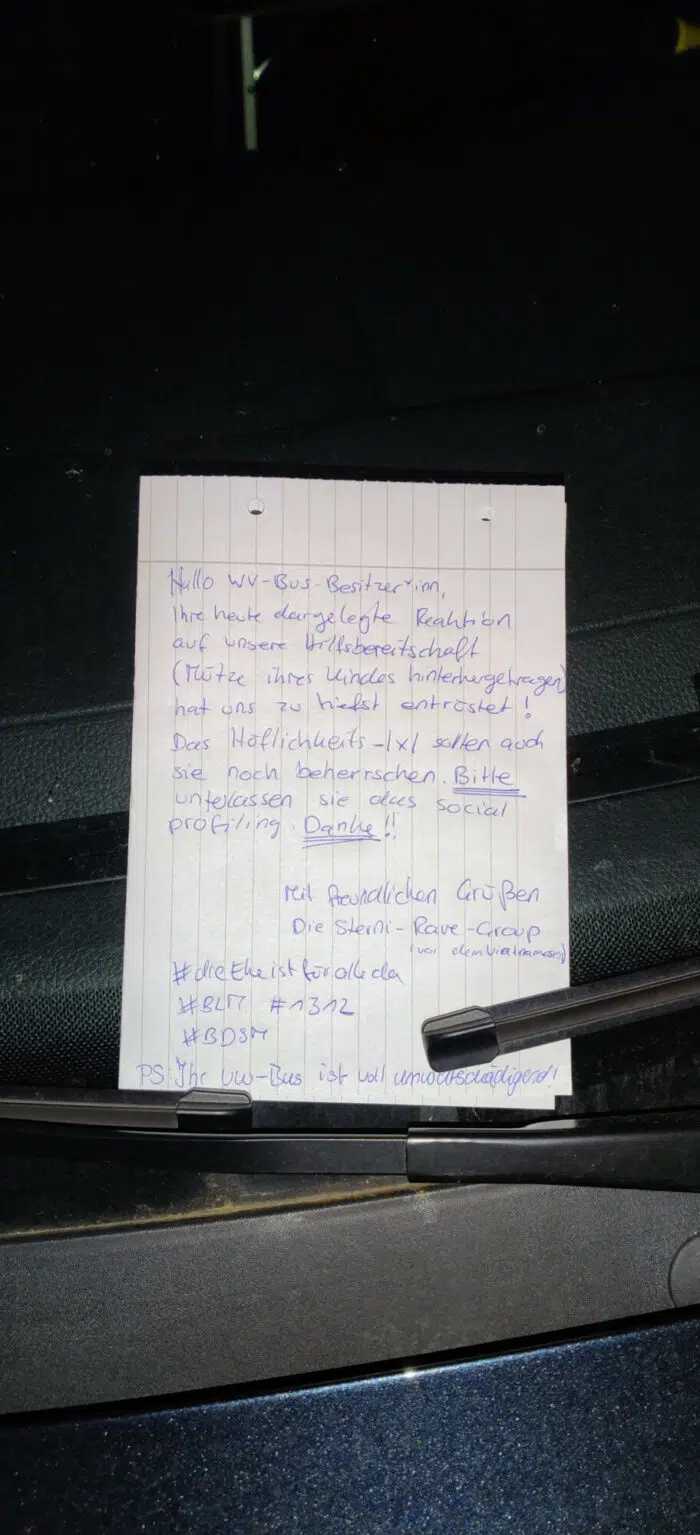 Hallo WV-Bus-Besitzer*inn,
Ihre heute dargelegte Reaktion
auf unsere Hilfsbereitschaft
(Mütze ihres Kindes hinterhergetragen)
hat uns zu tiefst entrüstet!
Das Höflichkeits-1x1 sollten auch
sie noch beherrschen. Bitte
unterlassen sie das social
profiling. Danke!!
Mit freundlichen Grüßen
Die Sterni-Rave-Group
(vor dem Vietnamesen)
#dieEheistfüralleda
#BLM #1312
#BDSM
PS: Ihr VW-Bus ist voll umweltschädigend!